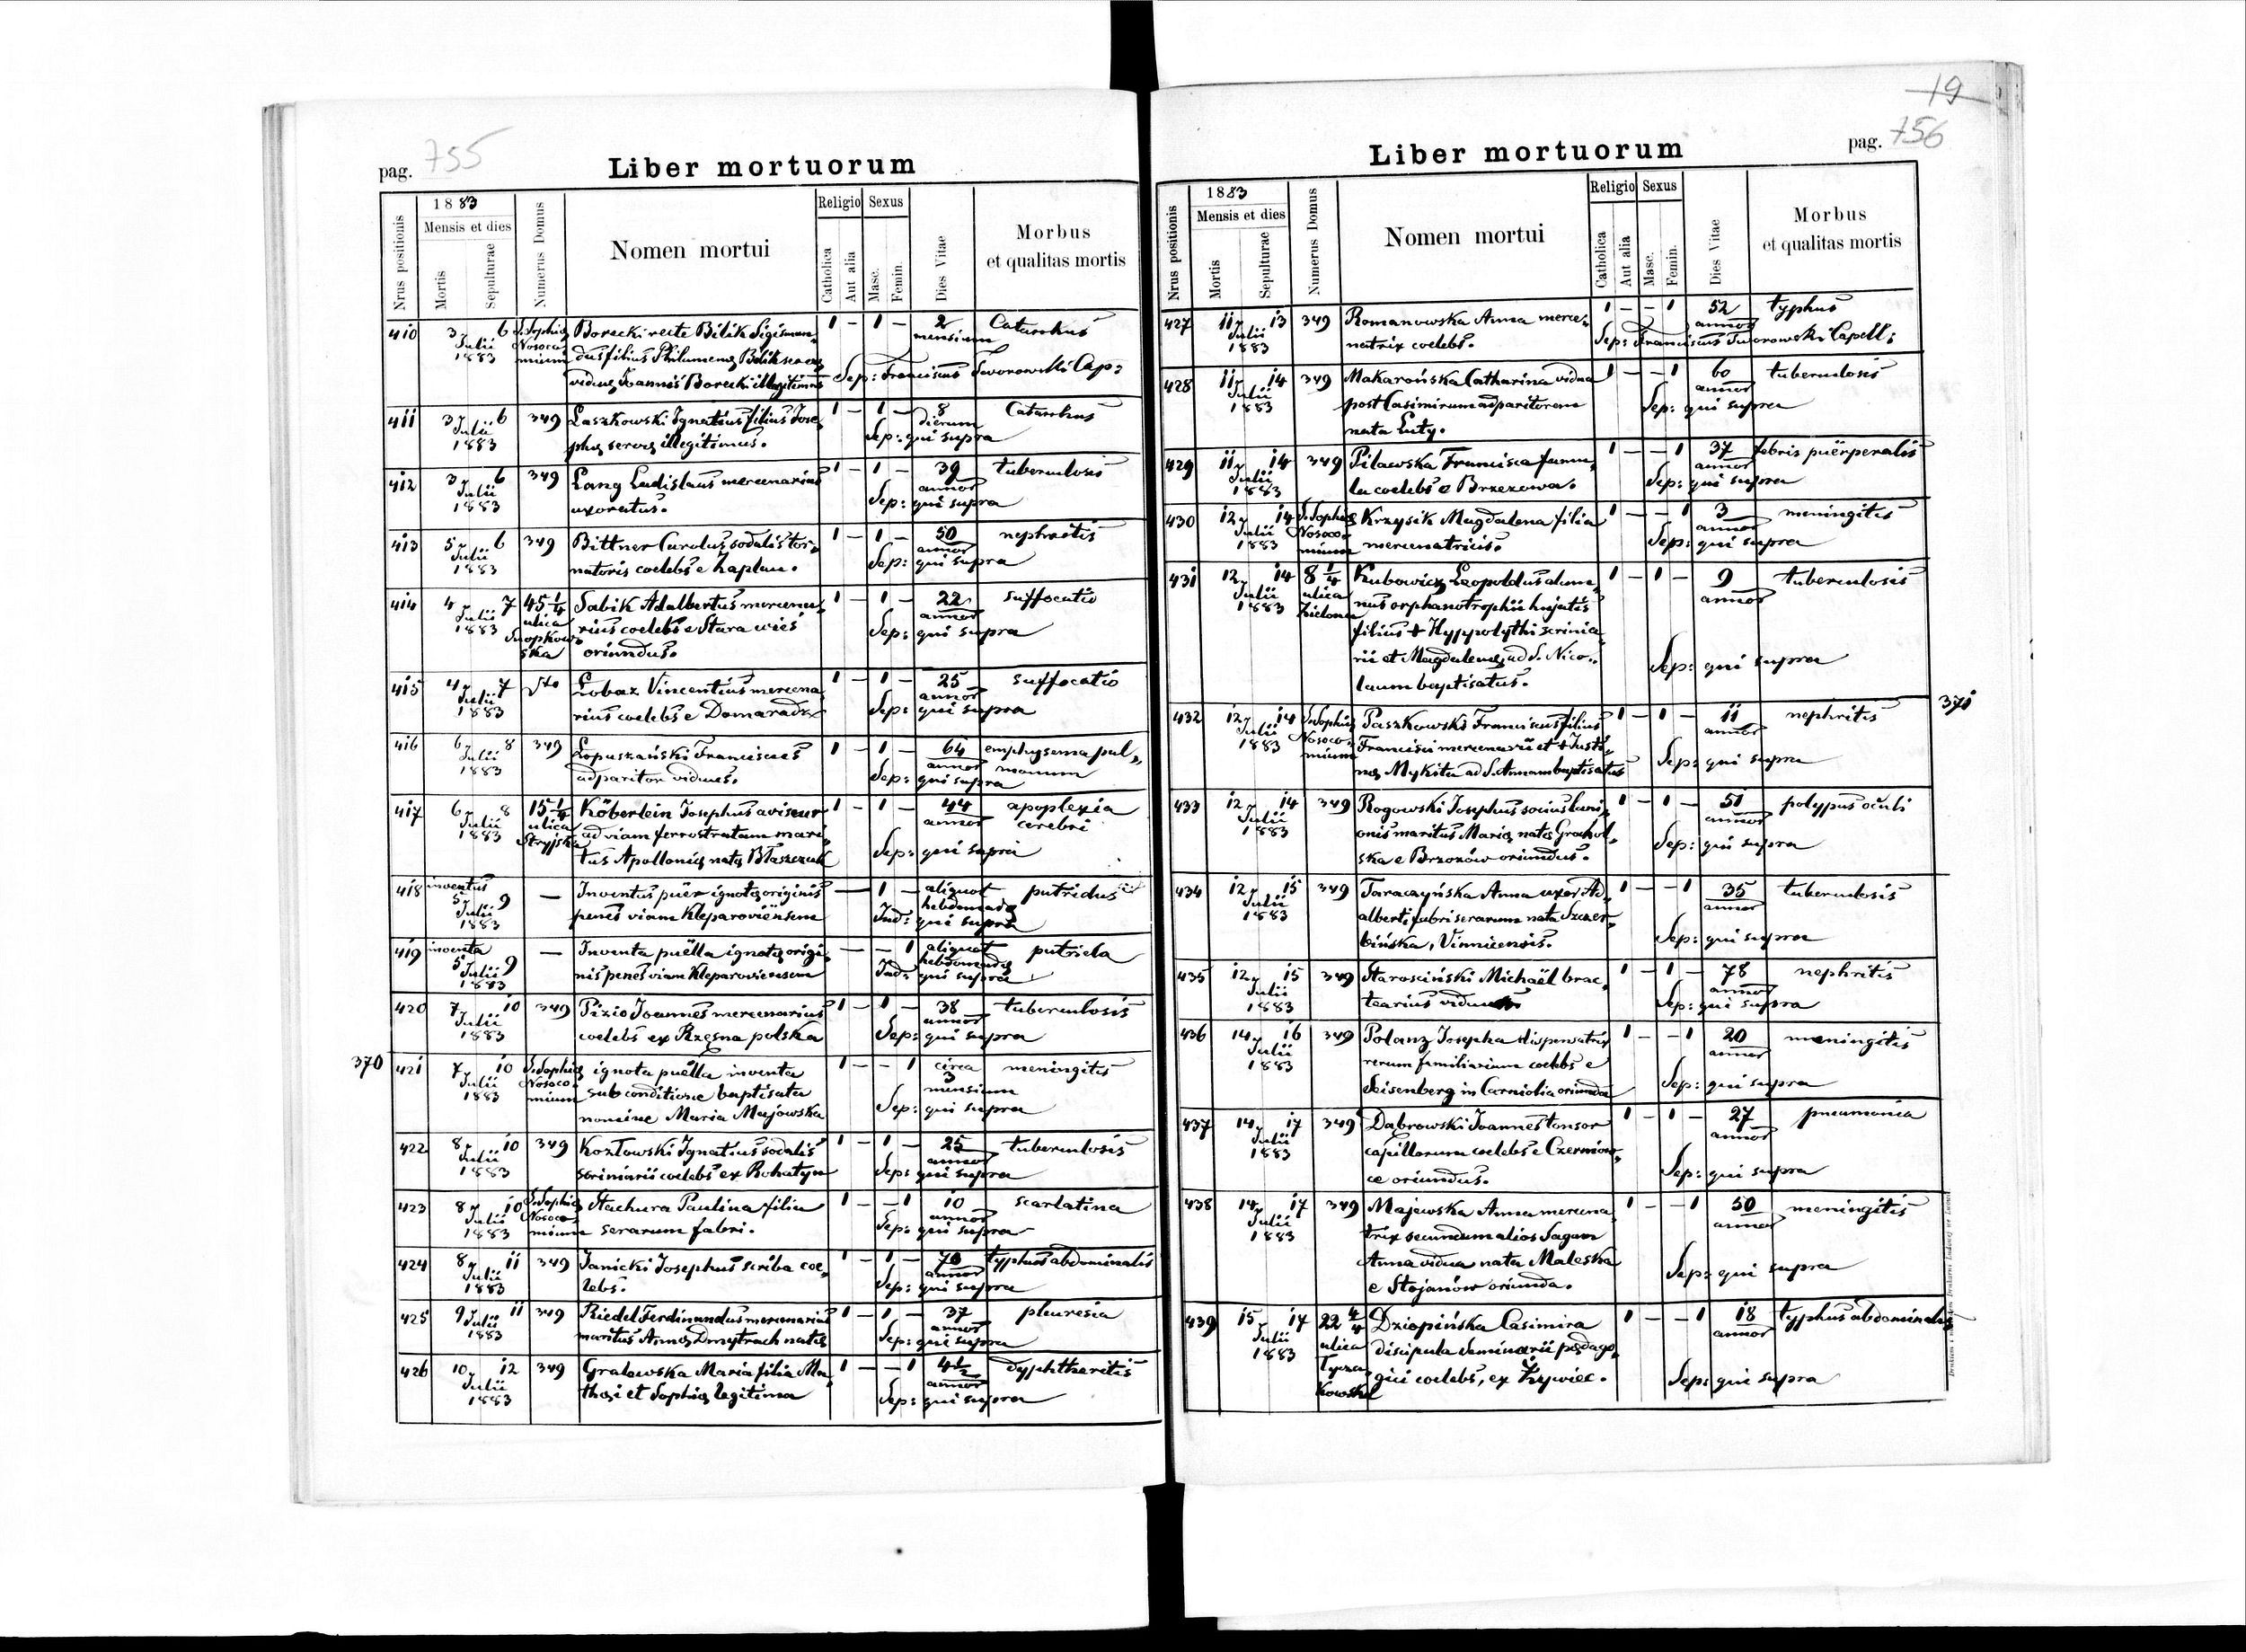 pag. 755
Liber mortuorum
Nrus positionis
1883
Mensis et dies
Mortis
Sepulturae
Numerus Domus
Nomen mortui
Religio
Catholica
Aut alia
Sexus
Masc.
Femin.
Dies Vitae
Morbus
et qualitas mortis
410 3 6 S. Sophiæ Borecki recte Bilik Sigismun- 1 – 1 – 2 Catarrhus
Julii Nosoco- dus filius Philumenæ Bilik servæ mensium
1883 mium viduæ Joannis Borecki illegitimus Sep: Franciscus Tworowski Cap:
411 3 6 349 Laszkowski Ignatius filius Jose- 1 – 1 – 8 Catarrhus
Julii phæ servæ illegitimus. dierum
1883 Sep: qui supra
412 3 6 349 Lang Ladislaus mercenarius 1 – 1 – 39 tuberculosis
Julii uxoratus. annor
1883 Sep: qui supra
413 5 6 349 Bittner Carolus sodalis tor- 1 – 1 – 50 nephritis
Julii natoris coelebs e Zaplau. annor
1883 Sep: qui supra
414 4 7 45 1/4 Sabik Adalbertus mercena- 1 – 1 – 22 suffocatio
Julii ulica rius coelebs e Stara wieś annor
1883 Snopkow- oriundus. Sep: qui supra
ska
415 4 7 dto Łobaz Vincentius mercena- 1 – 1 – 25 suffocatio
Julii rius coelebs e Domaradz annor
1883 Sep: qui supra
416 6 8 349 Łopuszański Franciscus 1 – 1 – 64 emphysema pul-
Julii adparitor viduus. annor monum
1883 Sep: qui supra
417 6 8 15 1/4 Köberlein Josephus aviseur 1 – 1 – 44 apoplexia
Julii ulica ad viam ferrostratam mari- annor cerebri
1883 Stryjska tus Apolloniæ natæ Błaszczuk Sep: qui supra
418 inventus 9 — Inventus puër ignotæ originis — 1 – aliquot putridus
5 Julii penes viam Kleparoviënsem hebdomadæ
1883 Ind: qui supra
419 inventa 9 — Inventa puëlla ignotæ origi- — – 1 aliquot putrida
5 Julii nis penes viam Kleparowiensem hebdomadæ
1883 Ind: qui supra
420 7 10 349 Pizio Joannes mercenarius 1 – 1 – 38 tuberculosis
Julii coelebs ex Rzęsna polska annor
1883 Sep: qui supra
370 421 7 10 S. Sophiæ ignota puëlla inventa 1 – – 1 circa meningitis
Julii Nosoco- sub conditione baptisata 3 mensium
1883 mium nomine Maria Majowska Sep: qui supra
422 8 10 349 Kozłowski Ignatius sodalis 1 – 1 – 25 tuberculosis
Julii scriniarii coelebs ex Rohatyn annor
1883 Sep: qui supra
423 8 10 S. Sophiæ Stachura Paulina filia 1 – – 1 10 scarlatina
Julii Nosoco- serarum fabri. annor
1883 mium Sep: qui supra
424 8 11 349 Janicki Josephus scriba coe- 1 – 1 – 70 typhus abdominalis
Julii lebs. annor
1883 Sep: qui supra
425 9 Julii 11 349 Riedel Ferdinandus mercenarius 1 – 1 – 37 pleuresia
1883 maritus Annæ Dmytrach natæ annor
Sep: qui supra
426 10 12 349 Gralewska Maria filia Ma- 1 – – 1 4 1/2 dyphtheritis
Julii thæi et Sophiæ legitima annor
1883 Sep: qui supra
19
pag. 756
Liber mortuorum
Nrus positionis
1883
Mensis et dies
Mortis
Sepulturae
Numerus Domus
Nomen mortui
Religio
Catholica
Aut alia
Sexus
Masc.
Femin.
Dies Vitae
Morbus
et qualitas mortis
427 11 13 349 Romanowska Anna merce- 1 – – 1 52 typhus
Julii natrix coelebs. annor
1883 Sep: Franciscus Tworowski Capell:
428 11 14 349 Makarońska Catharina vidua 1 – – 1 60 tuberculosis
Julii post Casimirum adparitorem annor
1883 nata Luty. Sep: qui supra
429 11 14 349 Pilawska Francisca famu- 1 – – 1 37 febris puërperalis
Julii la coelebs e Brzezowa. annor
1883 Sep: qui supra
430 12 14 S. Sophiæ Krzysik Magdalena filia 1 – – 1 3 meningitis
Julii Nosoco- mercenatricis. annor
1883 mium Sep: qui supra
431 12 14 8 1/4 Kubowicz Leopoldus alum- 1 – 1 – 9 tuberculosis
Julii ulica nus orphanotrophii hujatis annor
1883 Zielona filius + Hyppolythi scrinia-
rii et Magdalenæ, ad S. Nico- Sep: qui supra
laum baptisatus.
432 12 14 S. Sophiæ Paszkowski Franciscus filius 1 – 1 – 11 nephritis 371
Julii Nosoco- Francisci mercenarii et + Justi- annor
1883 mium næ Mykita ad S. Annam baptisatus Sep: qui supra
433 12 14 349 Rogowski Josephus socius lani- 1 – 1 – 51 polypus oculi
Julii onis maritus Mariæ natæ Grochol- annor
1883 ska e Brzozów oriundus. Sep: qui supra
434 12 15 349 Taraczyńska Anna uxor Ad- 1 – – 1 35 tuberculosis
Julii alberti fabri serarum nata Szczer- annor
1883 bińska, Vinnicensis. Sep: qui supra
435 12 15 349 Starosciński Michaël brac- 1 – 1 – 78 nephritis
Julii tearius viduus annor
1883 Sep: qui supra
436 14 16 349 Polanz Josepha dispensatrix 1 – – 1 20 meningitis
Julii rerum familiarium coelebs e annor
1883 Seisenberg in Carniolia oriunda Sep: qui supra
437 14 17 349 Dąbrowski Joannes tonsor 1 – 1 – 27 pneumonia
Julii capillorum coelebs e Czerniow- annor
1883 ce oriundus. Sep: qui supra
438 14 17 349 Majewska Anna mercena- 1 – – 1 50 meningitis
Julii trix secundum alios Sagan annor
1883 Anna vidua nata Maleska Sep: qui supra
e Stojanów oriunda.
439 15 17 22 4/4 Dziopińska Casimira 1 – – 1 18 typhus abdominalis
Julii ulica discipula seminarii pædago- annor
1883 Łycza- gici coelebs, ex Żywiec. Sep: qui supra
kowska